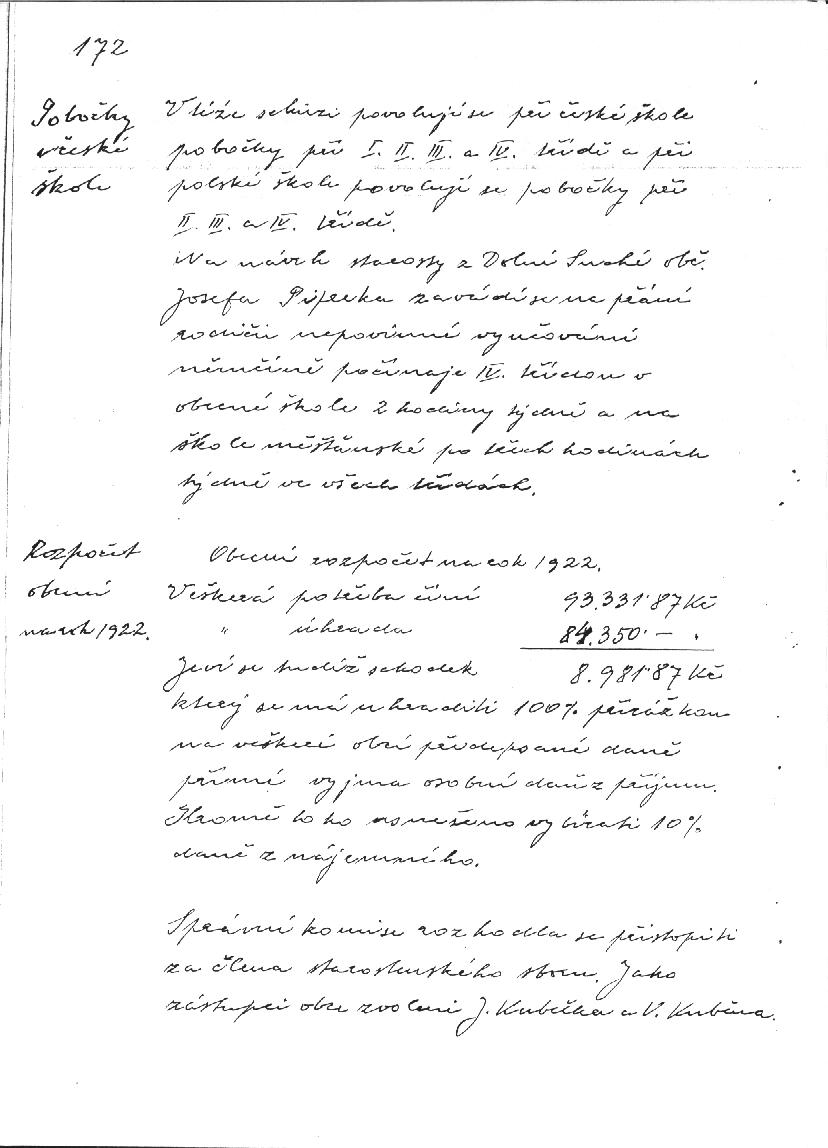 172
Pobočky
v české
škole
V téže schůzi povolují se při české škole
pobočky při I. II. III. a IV. třídě a při
polské škole povolují se pobočky při
II. III. a IV. třídě.
Na návrh starosty z Dolní Suché obč.
Josefa zavádí se na přání
rodičů nepovinné vyučování
němčině počínaje IV. třídou v
obecné škole 2 hodiny týdně a na
škole měšťanské po třech hodinách
týdně ve všech třídách.
Rozpočet
obecní
na rok 1922.
Obecní rozpočet na rok 1922.
Veškerá potřeba činí 93.331·87 Kč
" úhrada 84.350·— "
Jeví se tudíž schodek 8.981·87 Kč
který se má uhraditi 100% přirážkou
na veškeré obci předepsané daně
přímé vyjma osobní daň z příjmu.
Kromě toho usneseno vybírati 10%
daně z nájemného.
Správní komise rozhodla se přistoupiti
za člena starostenského sboru. Jako
zástupci obce zvoleni J. Kubička a V. Kubína.